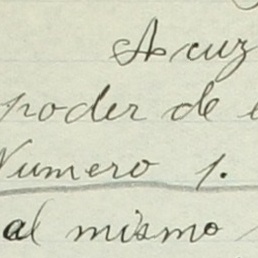 Acuz
poder de e
Numero 1.
al mismo